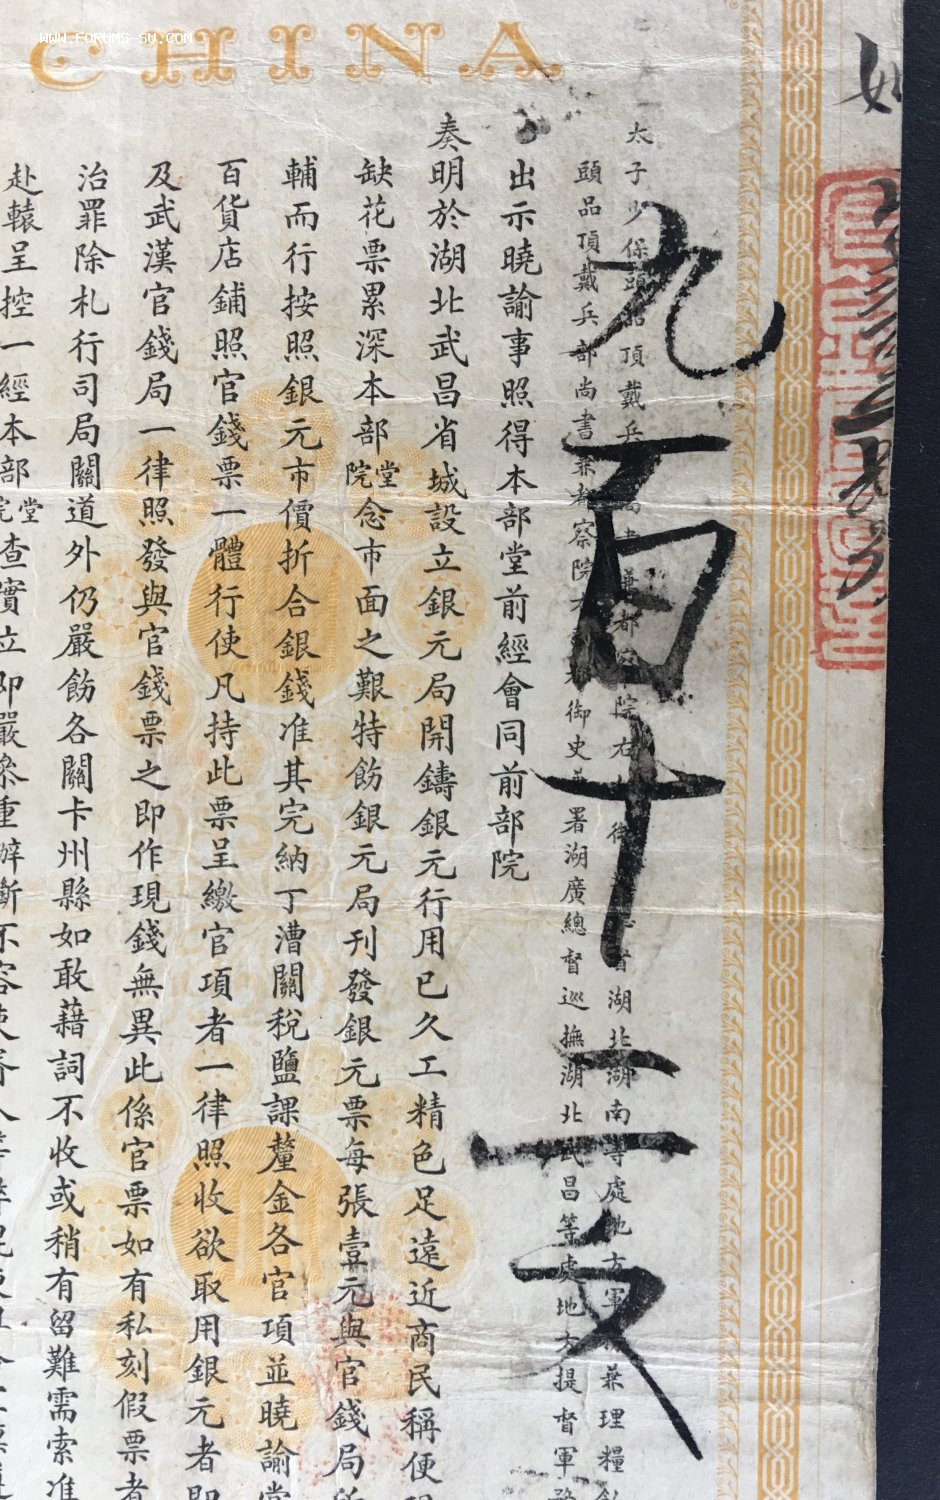 WWW.FORUMS-SU.COM
CHINA
九百十二文
太子少保頭品頂戴兵部尚書兼都察院右都御史湖北湖南等處地方軍務兼理糧
頭品頂戴兵部尚書兼都察院御史兼署湖廣總督巡撫湖北武昌等處地方提督軍務
出示曉諭事照得本部堂前經會同前部院
奏明於湖北武昌省城設立銀元局開鑄銀元行用已久工精色足遠近商民稱便現
缺花票累深本部堂院念市面之艱特飭銀元局刊發銀元票每張壹元與官錢局所
輔而行按照銀元市價折合銀錢准其完納丁漕關稅鹽課釐金各官項並曉諭當
百貨店鋪照官錢票一體行使凡持此票呈繳官項者一律照收欲取用銀元者即
及武漢官錢局一律照發與官錢票之即作現錢無異此係官票如有私刻假票者
治罪除札行司局關道外仍嚴飭各關卡州縣如敢藉詞不收或稍有留難需索准
赴轅呈控一經本部堂院查實立即嚴參重辦斷不容